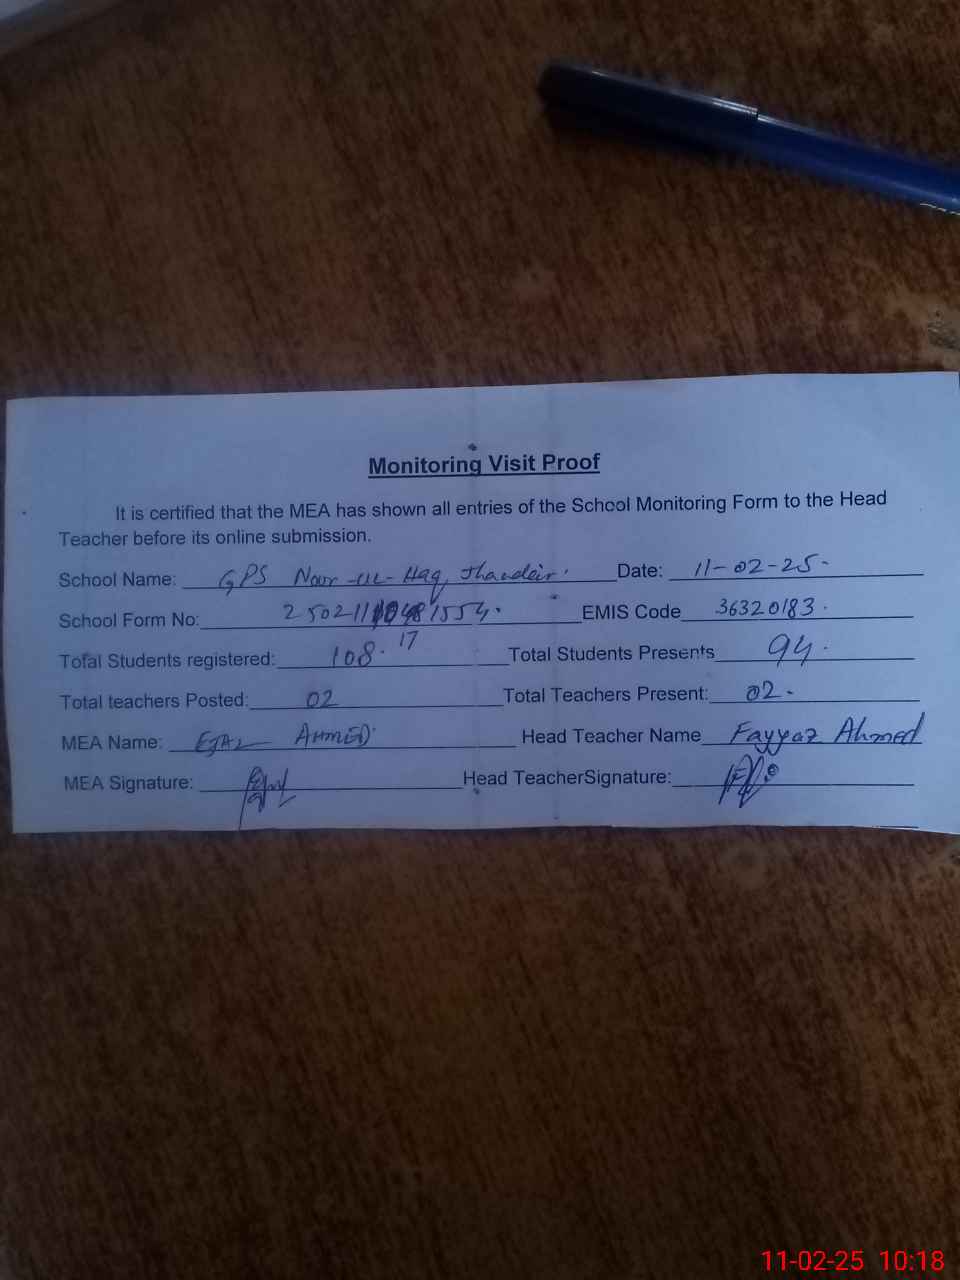 Monitoring Visit Proof
It is certified that the MEA has shown all entries of the School Monitoring Form to the Head
Teacher before its online submission.
School Name: GPS Noor-ul-Haq, Date: 11-02-25.
School Form No: EMIS Code 36320183.
17
Total Students registered: 108. Total Students Presents 94.
Total teachers Posted: 02 Total Teachers Present: 02.
MEA Name: EJAZ AHMED Head Teacher Name Fayyaz Ahmed
MEA Signature: Head TeacherSignature:
11-02-25 10:18